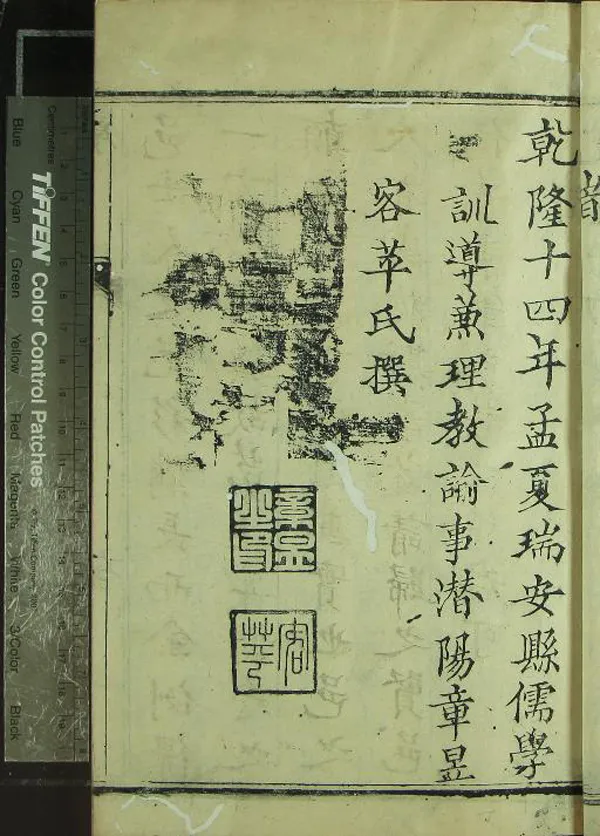 乾隆十四年孟夏瑞安縣儒學
訓導蒹理教諭事潛陽章昱
容苹氏撰
章昱
之印
容
苹
Centimetres
TIFFEN Color Control Patches
Blue
Cyan
Green
Yellow
Red
Magenta
White
3/Color
Black